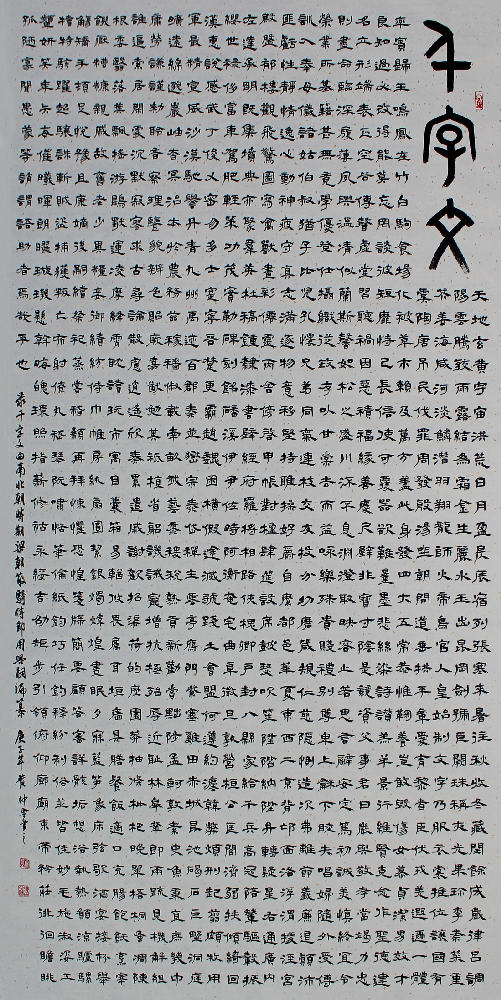 千字文
天地玄黃宇宙洪荒日月盈昃辰宿列張寒來暑往秋收冬藏閏餘成歲律呂調
陽雲騰致雨露結為霜金生麗水玉出崑岡劍號巨闕珠稱夜光果珍李柰菜重
芥薑海鹹河淡鱗潛羽翔龍師火帝鳥官人皇始制文字乃服衣裳推位讓國有
虞陶唐弔民伐罪周發殷湯坐朝問道垂拱平章愛育黎首臣伏戎羌遐邇壹體
率賓歸王鳴鳳在竹白駒食場化被草木賴及萬方蓋此身髮四大五常恭惟鞠養豈敢毀傷女慕貞潔男效才
良知過必改得能莫忘罔談彼短靡恃己長信使可覆器欲難量墨悲絲染詩讚羔羊景行維賢克念作聖德建
名立形端表正空谷傳聲虛堂習聽禍因惡積福緣善慶尺璧非寶寸陰是競資父事君曰嚴與敬孝當竭力忠
則盡命臨深履薄夙興溫凊似蘭斯馨如松之盛川流不息淵澄取映容止若思言辭安定篤初誠美慎終宜令
榮業所基籍甚無竟學優登仕攝職從政存以甘棠去而益詠樂殊貴賤禮別尊卑上和下睦夫唱婦隨外受傅
訓入奉母儀諸姑伯叔猶子比兒孔懷兄弟同氣連枝交友投分切磨箴規仁慈隱惻造次弗離節義廉退顛沛
匪虧性靜情逸心動神疲守真志滿逐物意移堅持雅操好爵自縻都邑華夏東西二京背邙面洛浮渭據涇宮
殿盤鬱樓觀飛驚圖寫禽獸畫彩仙靈丙舍傍啟甲帳對楹肆筵設席鼓瑟吹笙升階納陛弁轉疑星右通廣內
左達承明既集墳典亦聚群英杜稿鍾隸漆書壁經府羅將相路俠槐卿戶封八縣家給千兵高冠陪輦驅轂振
纓世祿侈富車駕肥輕策功茂實勒碑刻銘磻溪伊尹佐時阿衡奄宅曲阜微旦孰營桓公匡合濟弱扶傾綺迴
漢惠說感武丁俊乂密勿多士寔寧晉楚更霸趙魏困橫假途滅虢踐土會盟何遵約法韓弊煩刑起翦頗牧用
軍最精宣威沙漠馳譽丹青九州禹跡百郡秦并嶽宗恒岱禪主云亭雁門紫塞雞田赤城昆池碣石鉅野洞庭
曠遠綿邈巖岫杳冥治本於農務茲稼穡俶載南畝我藝黍稷稅熟貢新勸賞黜陟孟軻敦素史魚秉直庶幾中
庸勞謙謹敕聆音察理鑒貌辨色貽厥嘉猷勉其祗植省躬譏誡寵增抗極殆辱近恥林皋幸即兩疏見機解組
誰逼索居閒處沉默寂寥求古尋論散慮逍遙欣奏累遣慼謝歡招渠荷的歷園莽抽條枇杷晚翠梧桐早凋陳
根委翳落葉飄颻游鵾獨運凌摩絳霄耽讀玩市寓目囊箱易輶攸畏屬耳垣牆具膳餐飯適口充腸飽飫烹宰
飢厭糟糠親戚故舊老少異糧妾御績紡侍巾帷房紈扇圓潔銀燭煒煌晝眠夕寐藍筍象床弦歌酒宴接杯舉
觴矯手頓足悅豫且康嫡後嗣續祭祀烝嘗稽顙再拜悚懼恐惶牋牒簡要顧答審詳骸垢想浴執熱願涼驢騾
犢特駭躍超驤誅斬賊盜捕獲叛亡布射僚丸嵇琴阮嘯恬筆倫紙鈞巧任釣釋紛利俗並皆佳妙毛施淑姿工
顰妍笑年矢每催曦暉朗曜璇璣懸斡晦魄環照指薪修祜永綏吉劭矩步引領俯仰廊廟束帶矜莊徘徊瞻眺
孤陋寡聞愚蒙等誚謂語助者焉哉乎也 千字文由南北朝時期梁朝散騎侍郎周興嗣編纂 庚子年黃仲